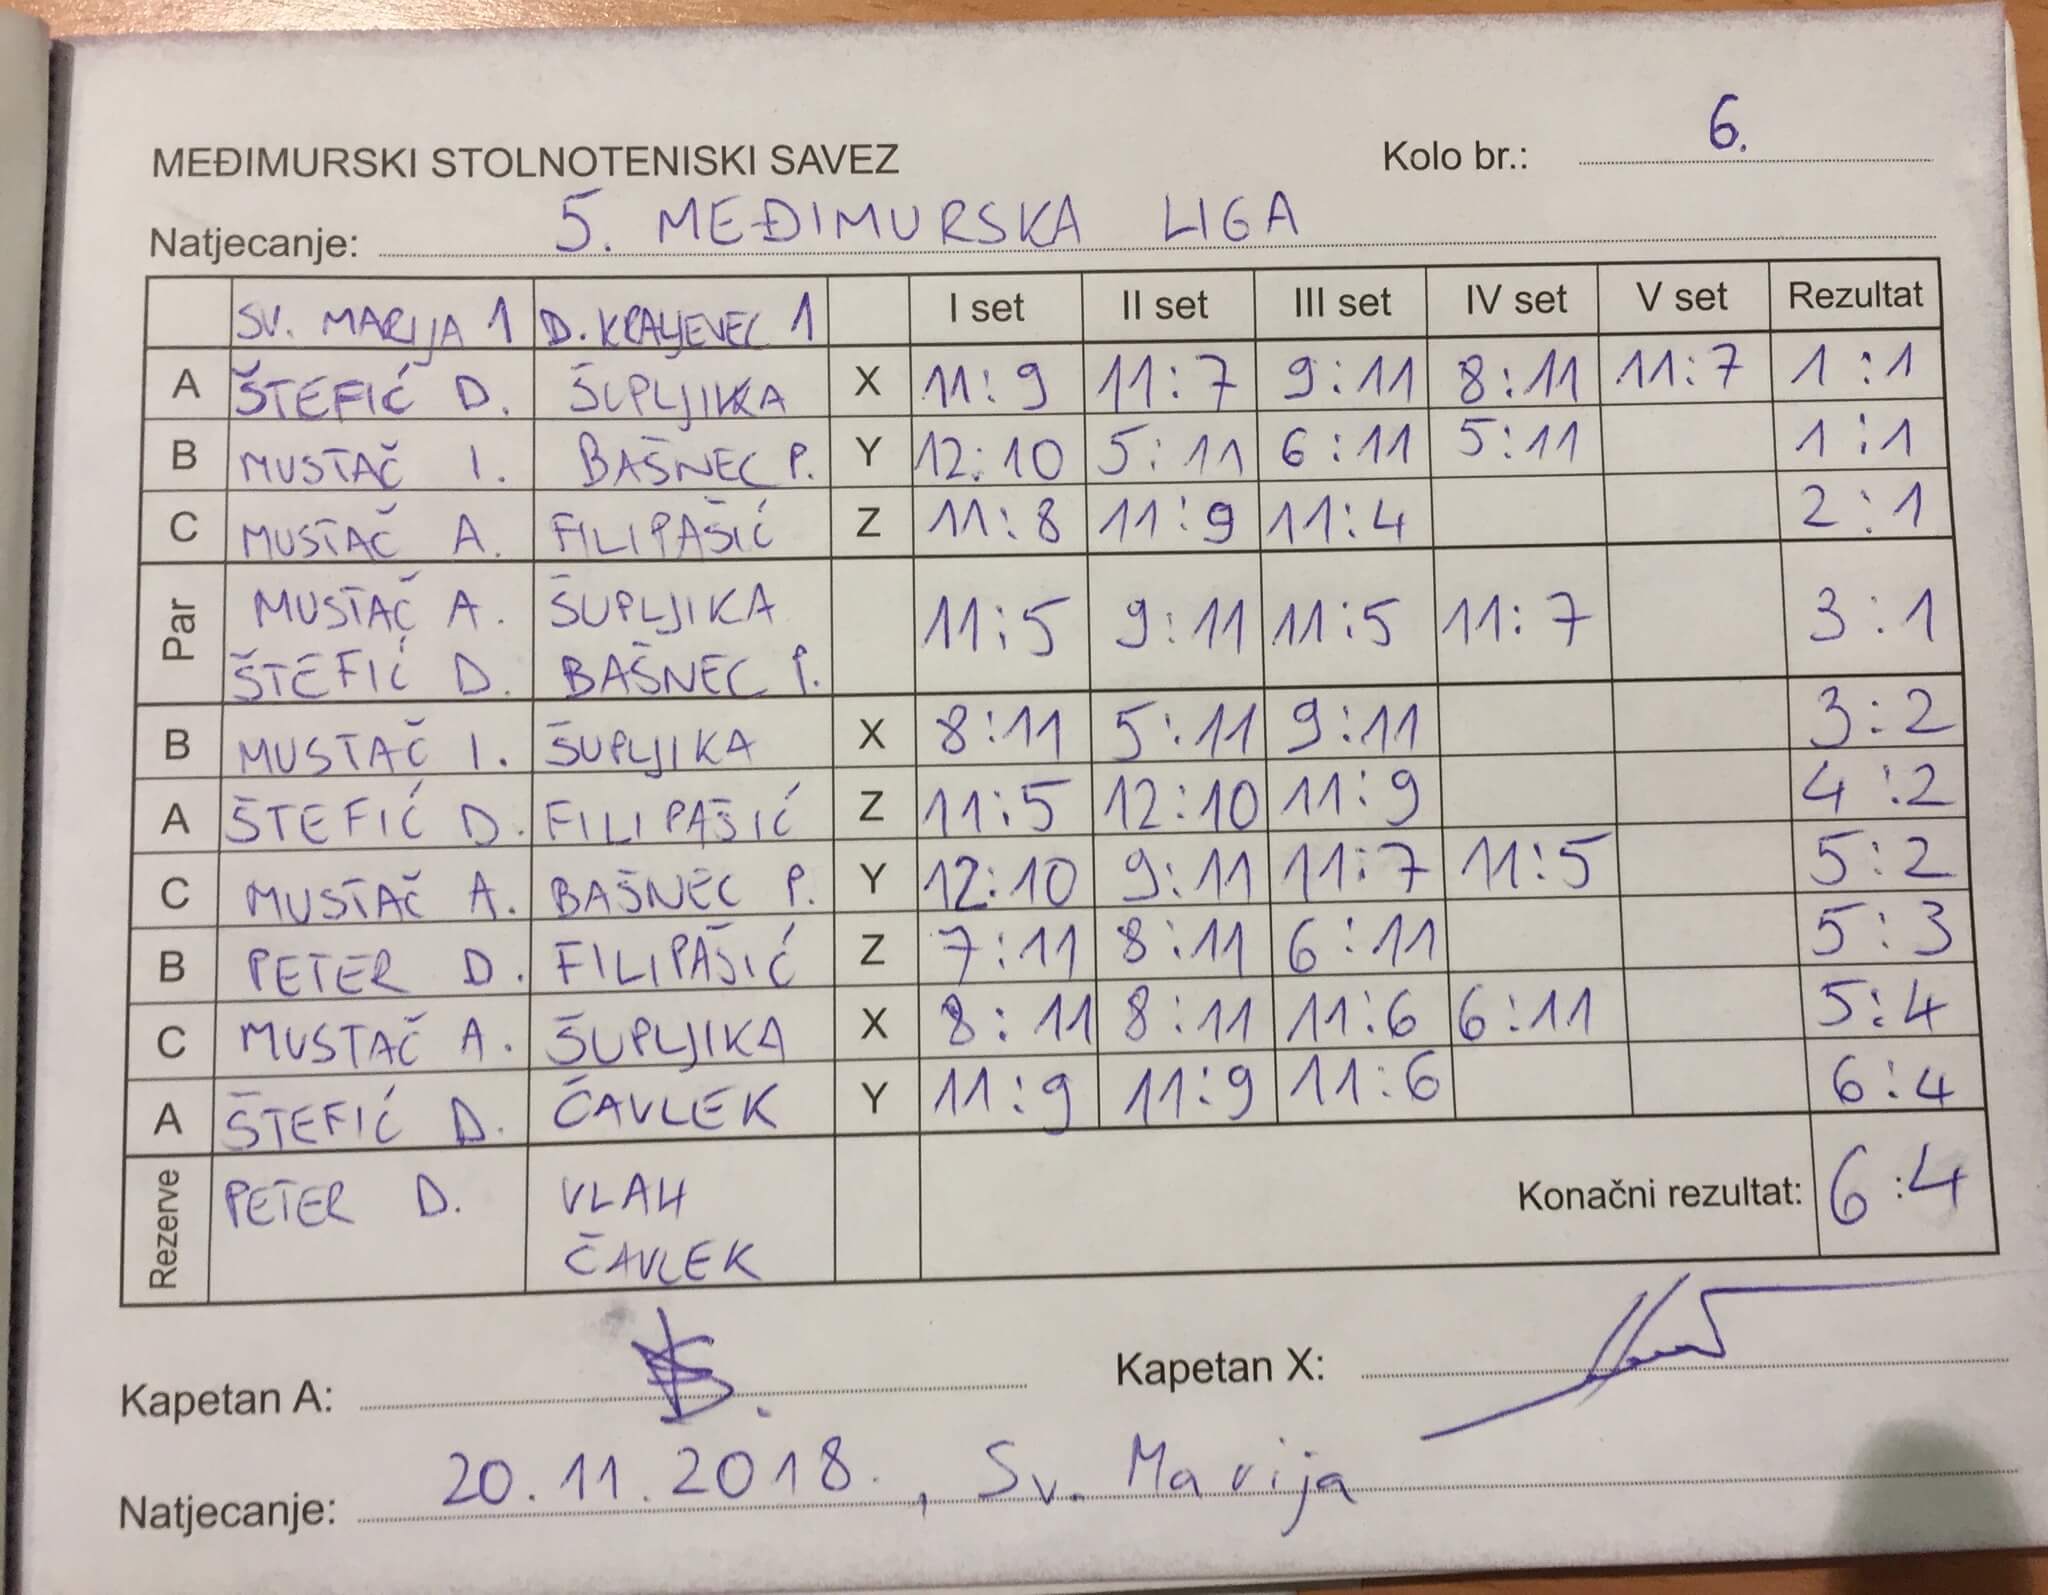 MEĐIMURSKI STOLNOTENISKI SAVEZ Kolo br.: 6.
Natjecanje: 5. MEĐIMURSKA LIGA
SV. MARIJA 1 D. KRALJEVEC 1 I set II set III set IV set V set Rezultat
A ŠTEFIĆ D. ŠUPLJIKA X 11:9 11:7 9:11 8:11 11:7 1:1
B MUSTAČ I. BAŠNEC P. Y 12:10 5:11 6:11 5:11 1:1
C MUSTAČ A. FILIPAŠIĆ Z 11:8 11:9 11:4 2:1
Par MUSTAČ A. ŠUPLJIKA 11:5 9:11 11:5 11:7 3:1
ŠTEFIĆ D. BAŠNEC P.
B MUSTAČ I. ŠUPLJIKA X 8:11 5:11 9:11 3:2
A ŠTEFIĆ D. FILIPAŠIĆ Z 11:5 12:10 11:9 4:2
C MUSTAČ A. BAŠNEC P. Y 12:10 9:11 11:7 11:5 5:2
B PETER D. FILIPAŠIĆ Z 7:11 8:11 6:11 5:3
C MUSTAČ A. ŠUPLJIKA X 8:11 8:11 11:6 6:11 5:4
A ŠTEFIĆ D. ČAVLEK Y 11:9 11:9 11:6 6:4
Rezerve PETER D. VLAH Konačni rezultat: 6:4
ČAVLEK
Kapetan A: Kapetan X:
Natjecanje: 20.11.2018., Sv. Marija